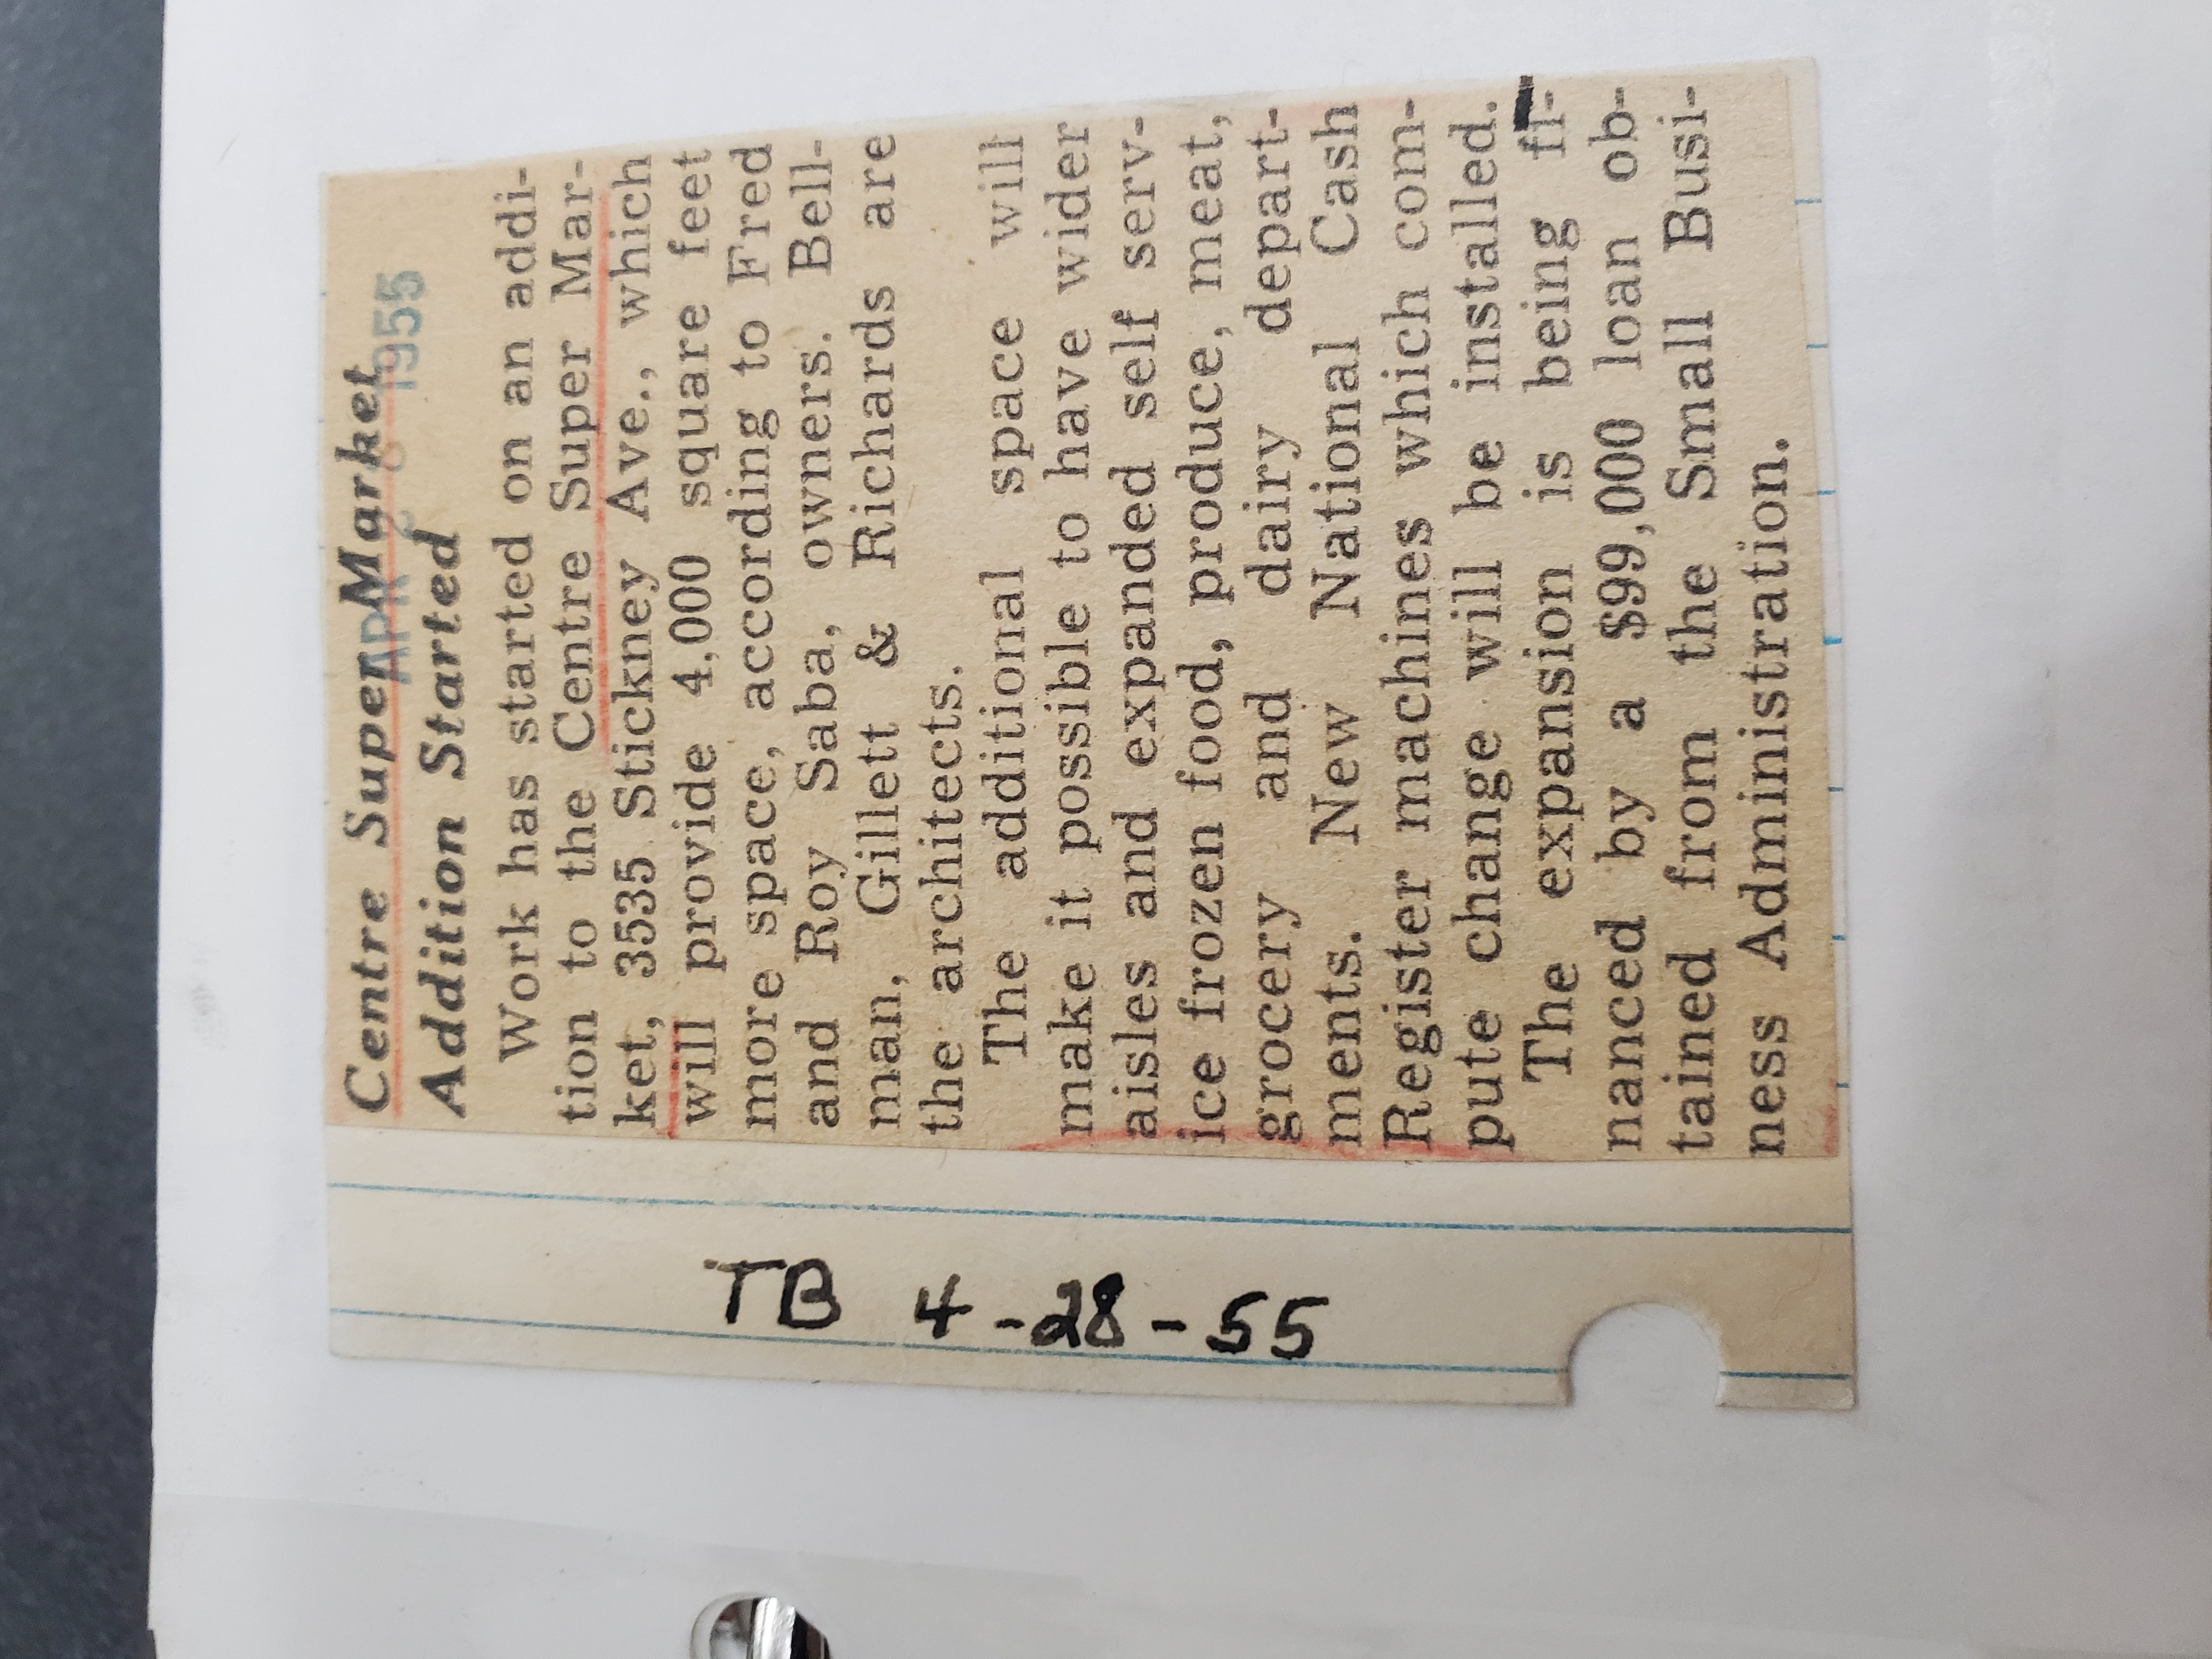 TB 4-28-55
Centre Super Market
APR 1955
Addition Started
Work has started on an addi-
tion to the Centre Super Mar-
ket, 3535 Stickney Ave., which
will provide 4,000 square feet
more space, according to Fred
and Roy Saba, owners. Bell-
man, Gillett & Richards are
the architects.
The additional space will
make it possible to have wider
aisles and expanded self serv-
ice frozen food, produce, meat,
grocery and dairy depart-
ments. New National Cash
Register machines which com-
pute change will be installed.
The expansion is being fi-
nanced by a $99,000 loan ob-
tained from the Small Busi-
ness Administration.